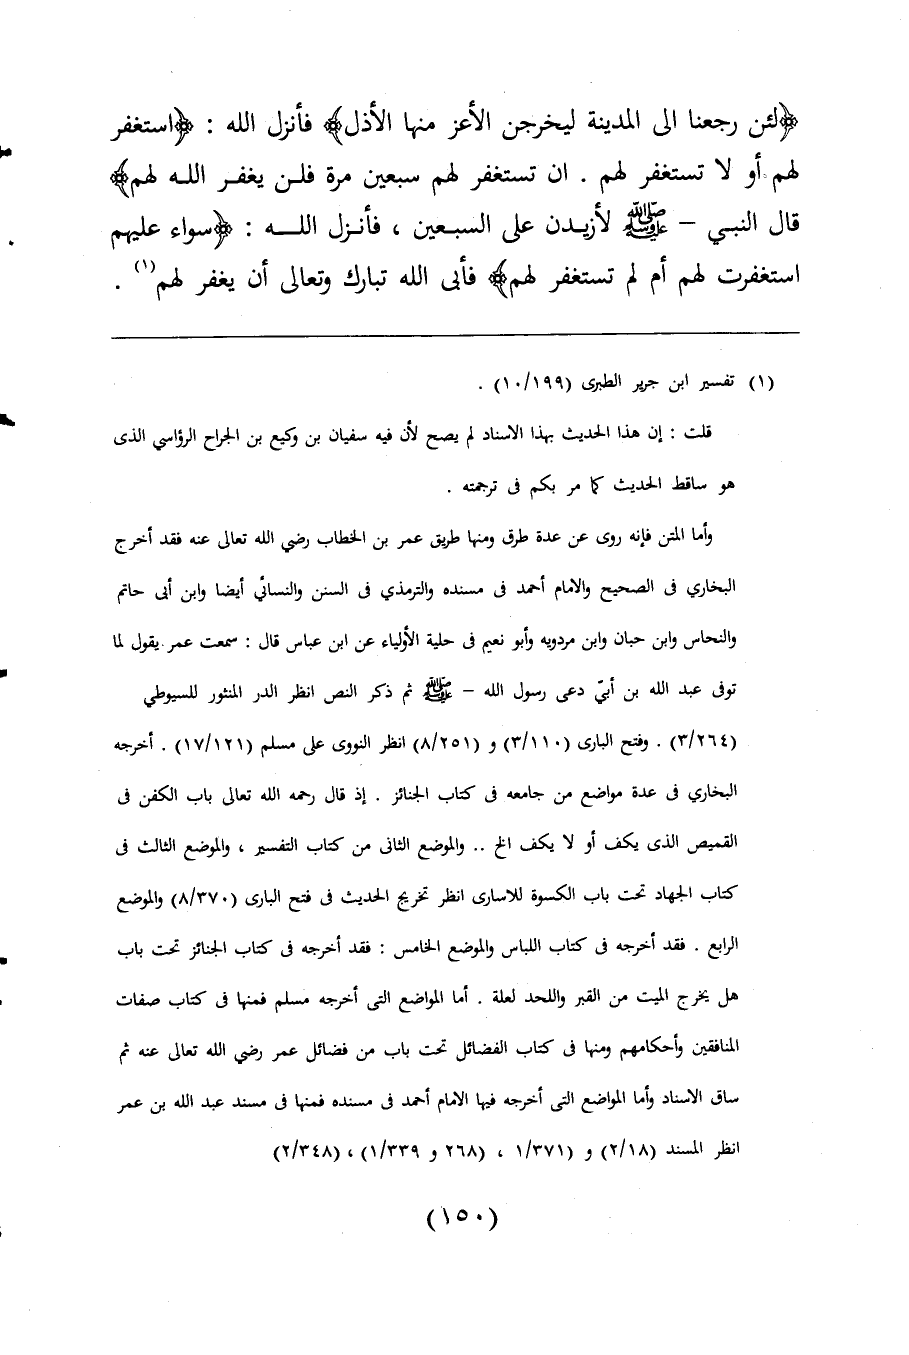 ﴿لئن رجعنا الى المدينة ليخرجن الأعز منها الأذل﴾ فأنزل الله : ﴿استغفر
لهم أو لا تستغفر لهم . ان تستغفر لهم سبعين مرة فلـن يغفـر اللـه لهم﴾
قال النبـي – ﷺ لأزيـدن على السبـعين ، فأنـزل اللـــه : ﴿سواء عليهم
استغفرت لهم أم لم تستغفر لهم﴾ فأبى الله تبارك وتعالى أن يغفر لهم(١) .
(١) تفسير ابن جرير الطبرى (١٠/١٩٩) .
قلت : إن هذا الحديث بهذا الاسناد لم يصح لأن فيه سفيان بن وكيع بن الجراح الرؤاسي الذى
هو ساقط الحديث كما مر بكم فى ترجمته .
وأما المتن فإنه روى عن عدة طرق ومنها طريق عمر بن الخطاب رضي الله تعالى عنه فقد أخرج
البخاري فى الصحيح والامام أحمد فى مسنده والترمذي فى السنن والنسائي أيضا وابن أبى حاتم
والنحاس وابن حبان وابن مردويه وأبو نعيم فى حلية الأولياء عن ابن عباس قال : سمعت عمر يقول لما
توفى عبد الله بن أبيّ دعى رسول الله – ﷺ ثم ذكر النص انظر الدر المنثور للسيوطي
(٣/٢٦٤) . وفتح البارى (٣/١١٠) و (٨/٢٥١) انظر النووى على مسلم (١٧/١٢١) . أخرجه
البخاري فى عدة مواضع من جامعه فى كتاب الجنائز . إذ قال رحمه الله تعالى باب الكفن فى
القميص الذى يكف أو لا يكف الخ .. والموضع الثانى من كتاب التفسير ، والموضع الثالث فى
كتاب الجهاد تحت باب الكسوة للاسارى انظر تخريج الحديث فى فتح البارى (٨/٣٧٠) والموضع
الرابع . فقد أخرجه فى كتاب اللباس والموضع الخامس : فقد أخرجه فى كتاب الجنائز تحت باب
هل يخرج الميت من القبر واللحد لعلة . أما المواضع التى أخرجه مسلم فمنها فى كتاب صفات
المنافقين وأحكامهم ومنها فى كتاب الفضائل تحت باب من فضائل عمر رضي الله تعالى عنه ثم
ساق الاسناد وأما المواضع التى أخرجه فيها الامام أحمد فى مسنده فمنها فى مسند عبد الله بن عمر
انظر المسند (٢/١٨) و (١/٣٧١ ، (٢٦٨ و ١/٣٣٩) ، (٢/٣٤٨)
(١٥٠)